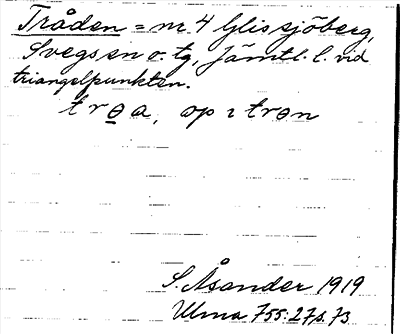 Tråden = nr 4 Glissjöberg,
Svegs sn o. tg, Jämtl. l. vid
triangelpunkten.
trɵa, op ı trɵn
S. Åsander 1919
Ulma 755:27, s. 73